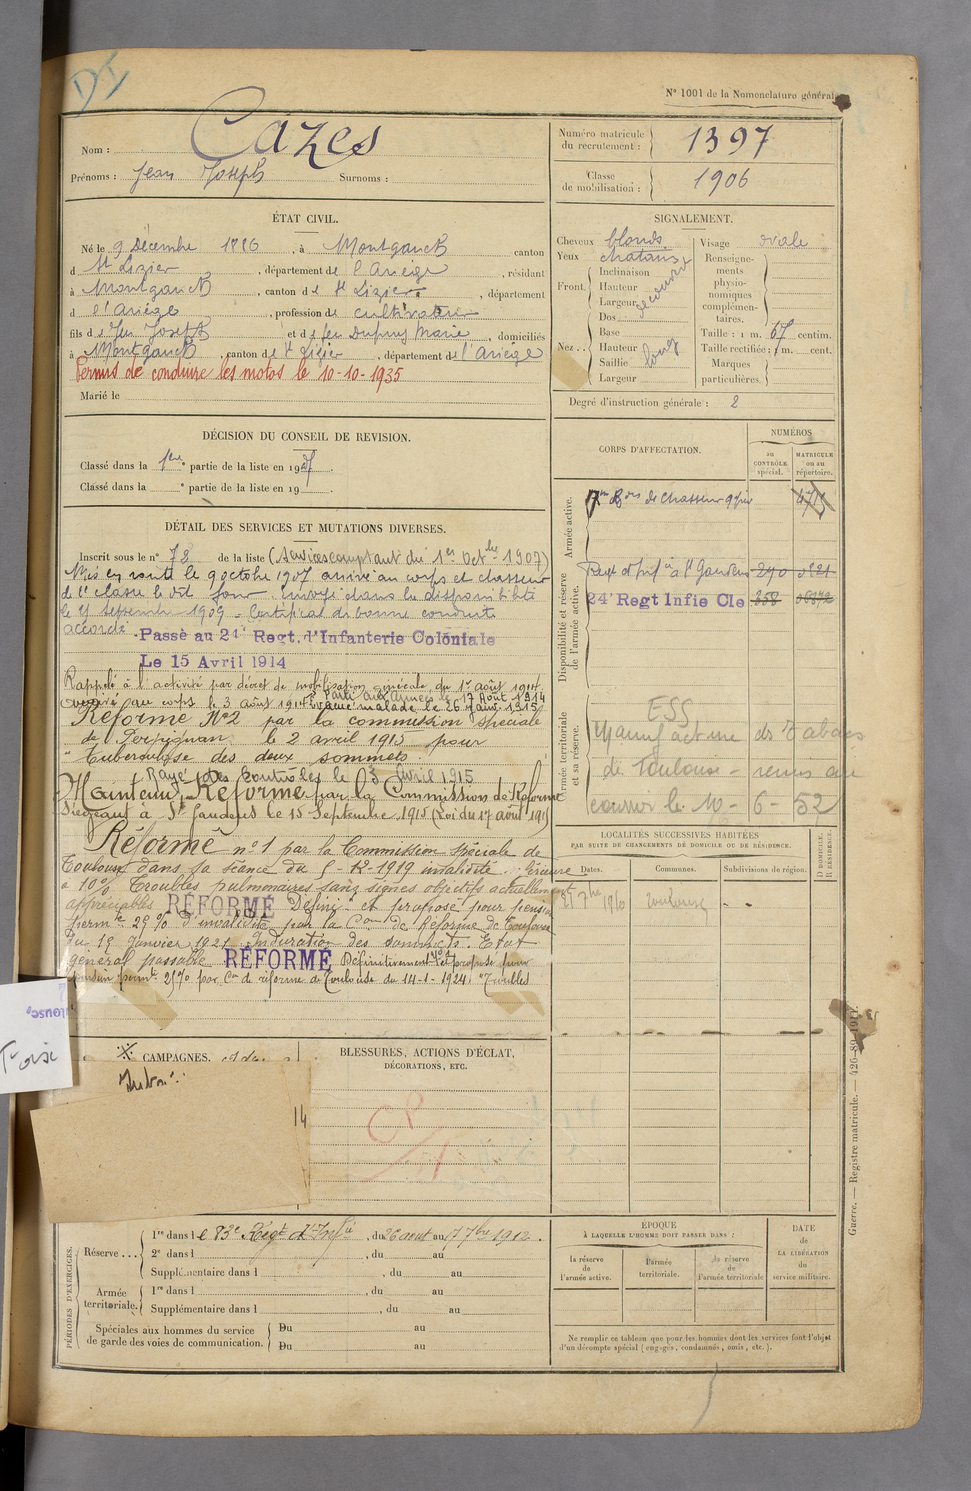 DI
N° 1001 de la Nomenclature générale
Nom : Cazes
Prénoms : Jean Joseph Surnoms :
Numéro matricule du recrutement : 1397
Classe de mobilisation : 1906
ÉTAT CIVIL.
Né le 9 Décembre 1886, à Montgauch canton
d St Lizier, département de l'Ariège, résidant
à Montgauch, canton de St Lizier, département
d l'Ariège, profession de cultivateur
fils de feu Joseph et de feu Dupuy Marie, domiciliés
à Montgauch, canton de St Lizier, département de l'Ariège
Permis de conduire les motos le 10-10-1935
Marié le
SIGNALEMENT.
Cheveux blonds
Yeux chatains
Front. Inclinaison
Hauteur
Largeur
Dos
Base
Nez.. Hauteur
Saillie long
Largeur
Visage ovale
Renseignements physionomiques complémentaires.
Taille : 1 m. 67 centim.
Taille rectifiée : 1 m. cent.
Marques particulières.
Degré d'instruction générale : 2
DÉCISION DU CONSEIL DE REVISION.
Classé dans la 1ère partie de la liste en 1907.
Classé dans la ° partie de la liste en 19 .
DÉTAIL DES SERVICES ET MUTATIONS DIVERSES.
Inscrit sous le n° 72 de la liste (Services comptant du 1er Octbre 1907)
Mis en route le 9 octobre 1907 arrivé au corps et chasseur
de 2e classe le dit jour. envoyé dans la disponibilité
le 25 Septembre 1909 - Certificat de bonne conduite
accordé.
Passé au 24e Regt. d'Infanterie Coloniale
Le 15 Avril 1914
Rappelé à l'activité par décret de mobilisation générale du 1er août 1914.
Parti aux Armées le 17 Août 1914
arrivé au corps le 3 août 1914 Evacué malade le 26 Janv. 1915
Réformé N°2 par la commission spéciale
de Perpignan le 2 avril 1915 pour
"Tuberculose des deux sommets"
Rayé des Contrôles le 3 Avril 1915
Maintenu Réformé par la Commission de Réforme
siégeant à St Gaudens le 15 Septembre 1915 (Loi du 17 août 1915)
Réformé n°1 par la Commission spéciale de
Toulouse dans sa séance du 5-12-1919 invalidité inférieure
à 10% Troubles pulmonaires sans signes objectifs actuellement
appréciables RÉFORMÉ Définif et proposé pour pension
permte 25% d'invalidité par la Con de Réforme de Toulouse
du 19 Janvier 1921 Induration des sommets. Etat
général passable RÉFORMÉ Définitivement et proposé pour
pension permte 25% par Con de réforme de Toulouse du 14-1-1924, "Troubles
CORPS D'AFFECTATION.
NUMÉROS
au CONTRÔLE spécial.
MATRICULE ou au répertoire.
Armée active.
17me Bon de Chasseur à pied
Disponibilité et réserve de l'armée active.
Regt d'Inf à St Gaudens 290
24e Regt Infie Cle 358
Armée territoriale et sa réserve.
ESS
Manufacture des Tabacs
de Toulouse - remis au
courrier le 10-6-52
LOCALITÉS SUCCESSIVES HABITÉES
PAR SUITE DE CHANGEMENTS DE DOMICILE OU DE RÉSIDENCE.
Dates.
Communes.
Subdivisions de région.
D DOMICILE, R RÉSIDENCE.
7bre 1910 Toulouse - -
CAMPAGNES.
14
BLESSURES, ACTIONS D'ÉCLAT,
DÉCORATIONS, ETC.
PÉRIODES D'EXERCICES.
Réserve... 1re dans le 83e Régt d'Infie, du 26 aout au 17 7bre 1912.
2e dans l , du au
Supplémentaire dans l , du au
Armée territoriale. 1re dans l , du au
Supplémentaire dans l , du au
Spéciales aux hommes du service de garde des voies de communication. Du au
Du au
ÉPOQUE
À LAQUELLE L'HOMME DOIT PASSER DANS :
la réserve de l'armée active.
l'armée territoriale.
la réserve de l'armée territoriale
DATE de LA LIBÉRATION du service militaire.
Ne remplir ce tableau que pour les hommes dont les services font l'objet
d'un décompte spécial (engagés, condamnés, omis, etc.).
Guerre. — Registre matricule. — 426-89-1917.